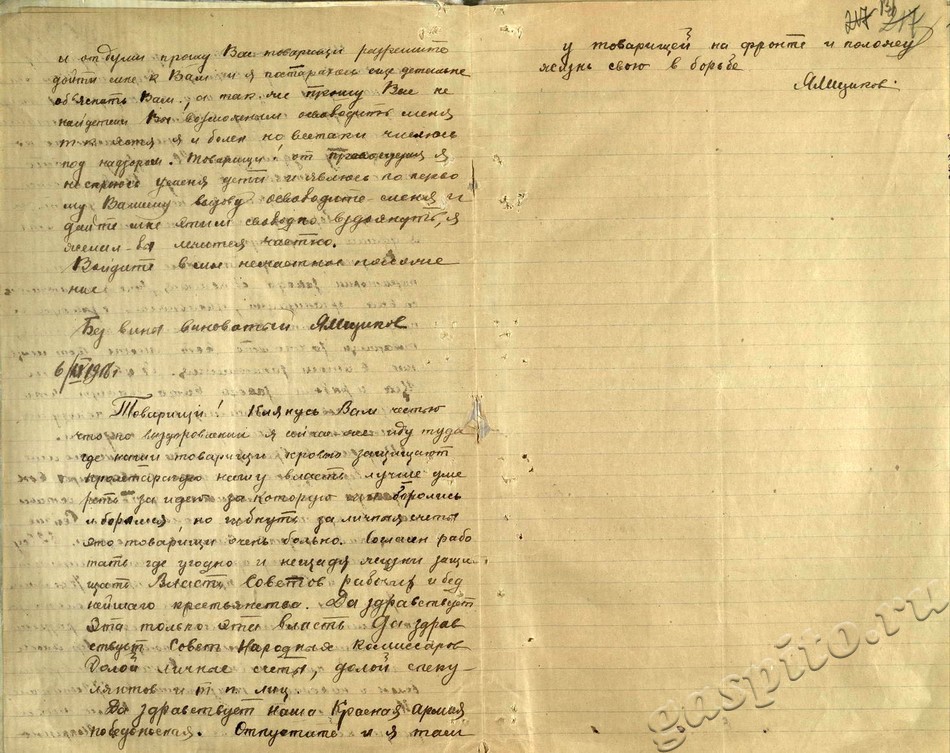 и от души прошу Вас товарищи разрешите
дойти мне к Вам и я постараюсь еще детальне
объяснить Вам, а так же прошу Вас не
найдете ли Вы возможным освободить меня
т.к. хотя я и болен но всетаки числюсь
под надзором. Товарищи! от правосудия я
не скроюсь у меня дети и явлюсь по перво
му Вашему вызову освободите меня и
дайте мне этим свободно вздохнуть, я
Войдите в мое несчастное положе
ние
Без вины виноватый Ямщиков
6/XI 1918 г
Товарищи! Клянусь Вам честью
что по выздоровлении я сейчас же иду туда
где наши товарищи кровью защищают
пролетарскую нашу власть лучше уме
реть за идею за которую боролись
и боремся, но гибнуть за личная счеты
это товарищи очень больно. Согласен рабо
тать где угодно и нещадя жизни защи
щать Власть Советов рабочих и бед
нейшаго крестьянства. Да здравствует
эта только эта власть Да здрав
ствует Совет Народная Комиссаров
Долой личнае счеты, долой спеку-
лянтов и т. п. лиц.
Да здравствует наша Красная армия
победоносная. Отпустите и я там
217
217
у товарищей на фронте и положу
жизнь свою в борьбе
Ямщиков.
gaspito.ru